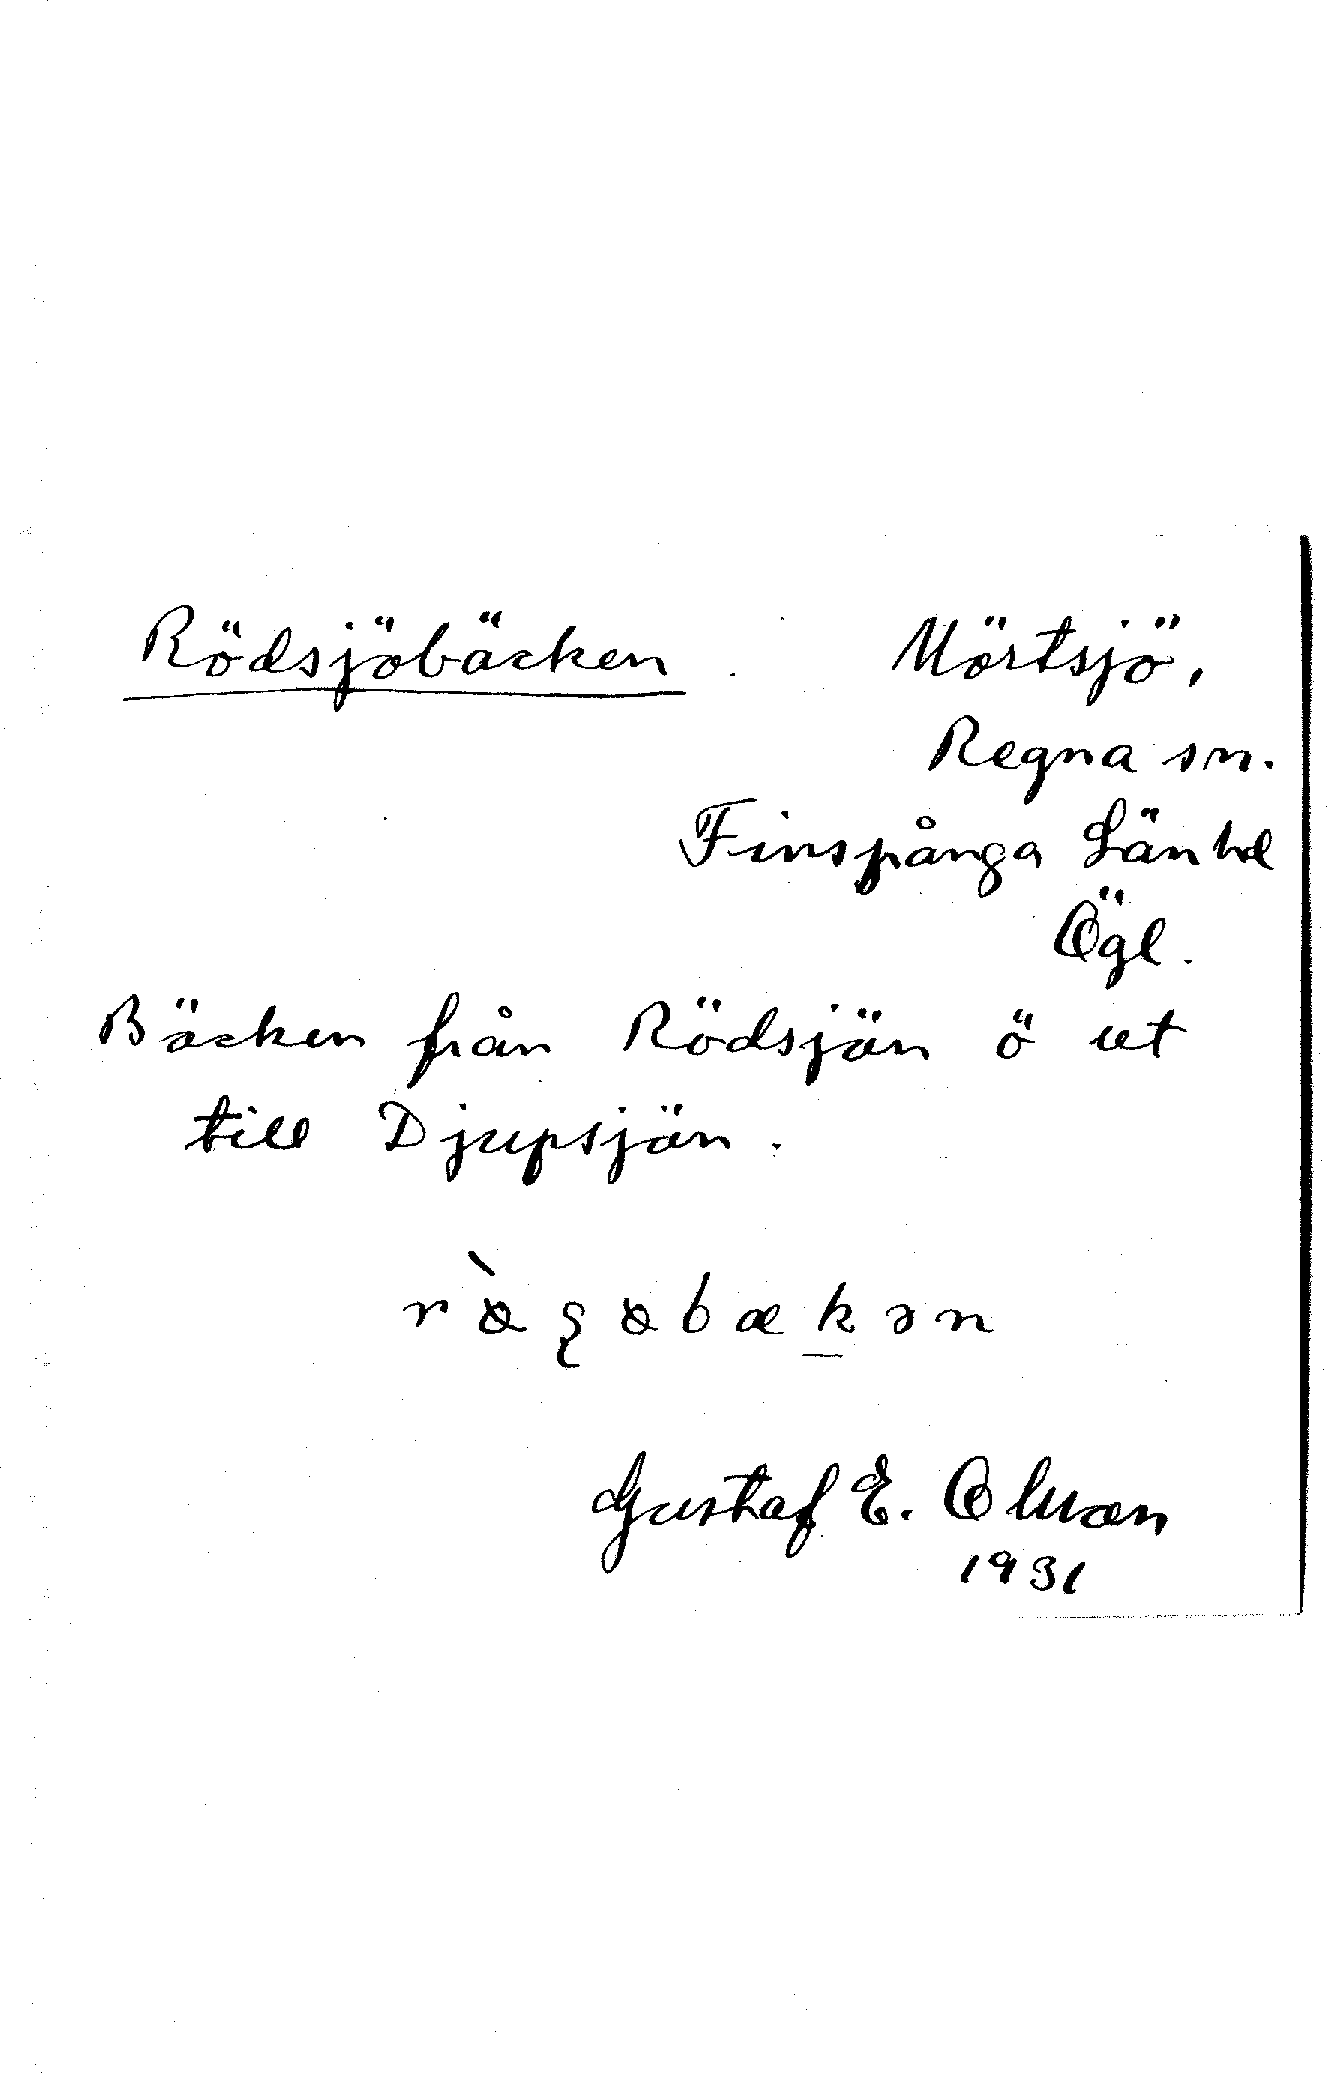 Rödsjöbäcken. Mörtsjö,
Regna sn.
Finspånga Län hd
Ögl.
Bäcken från Rödsjön ö ut
till Djupsjön.
Gustaf E.
1931